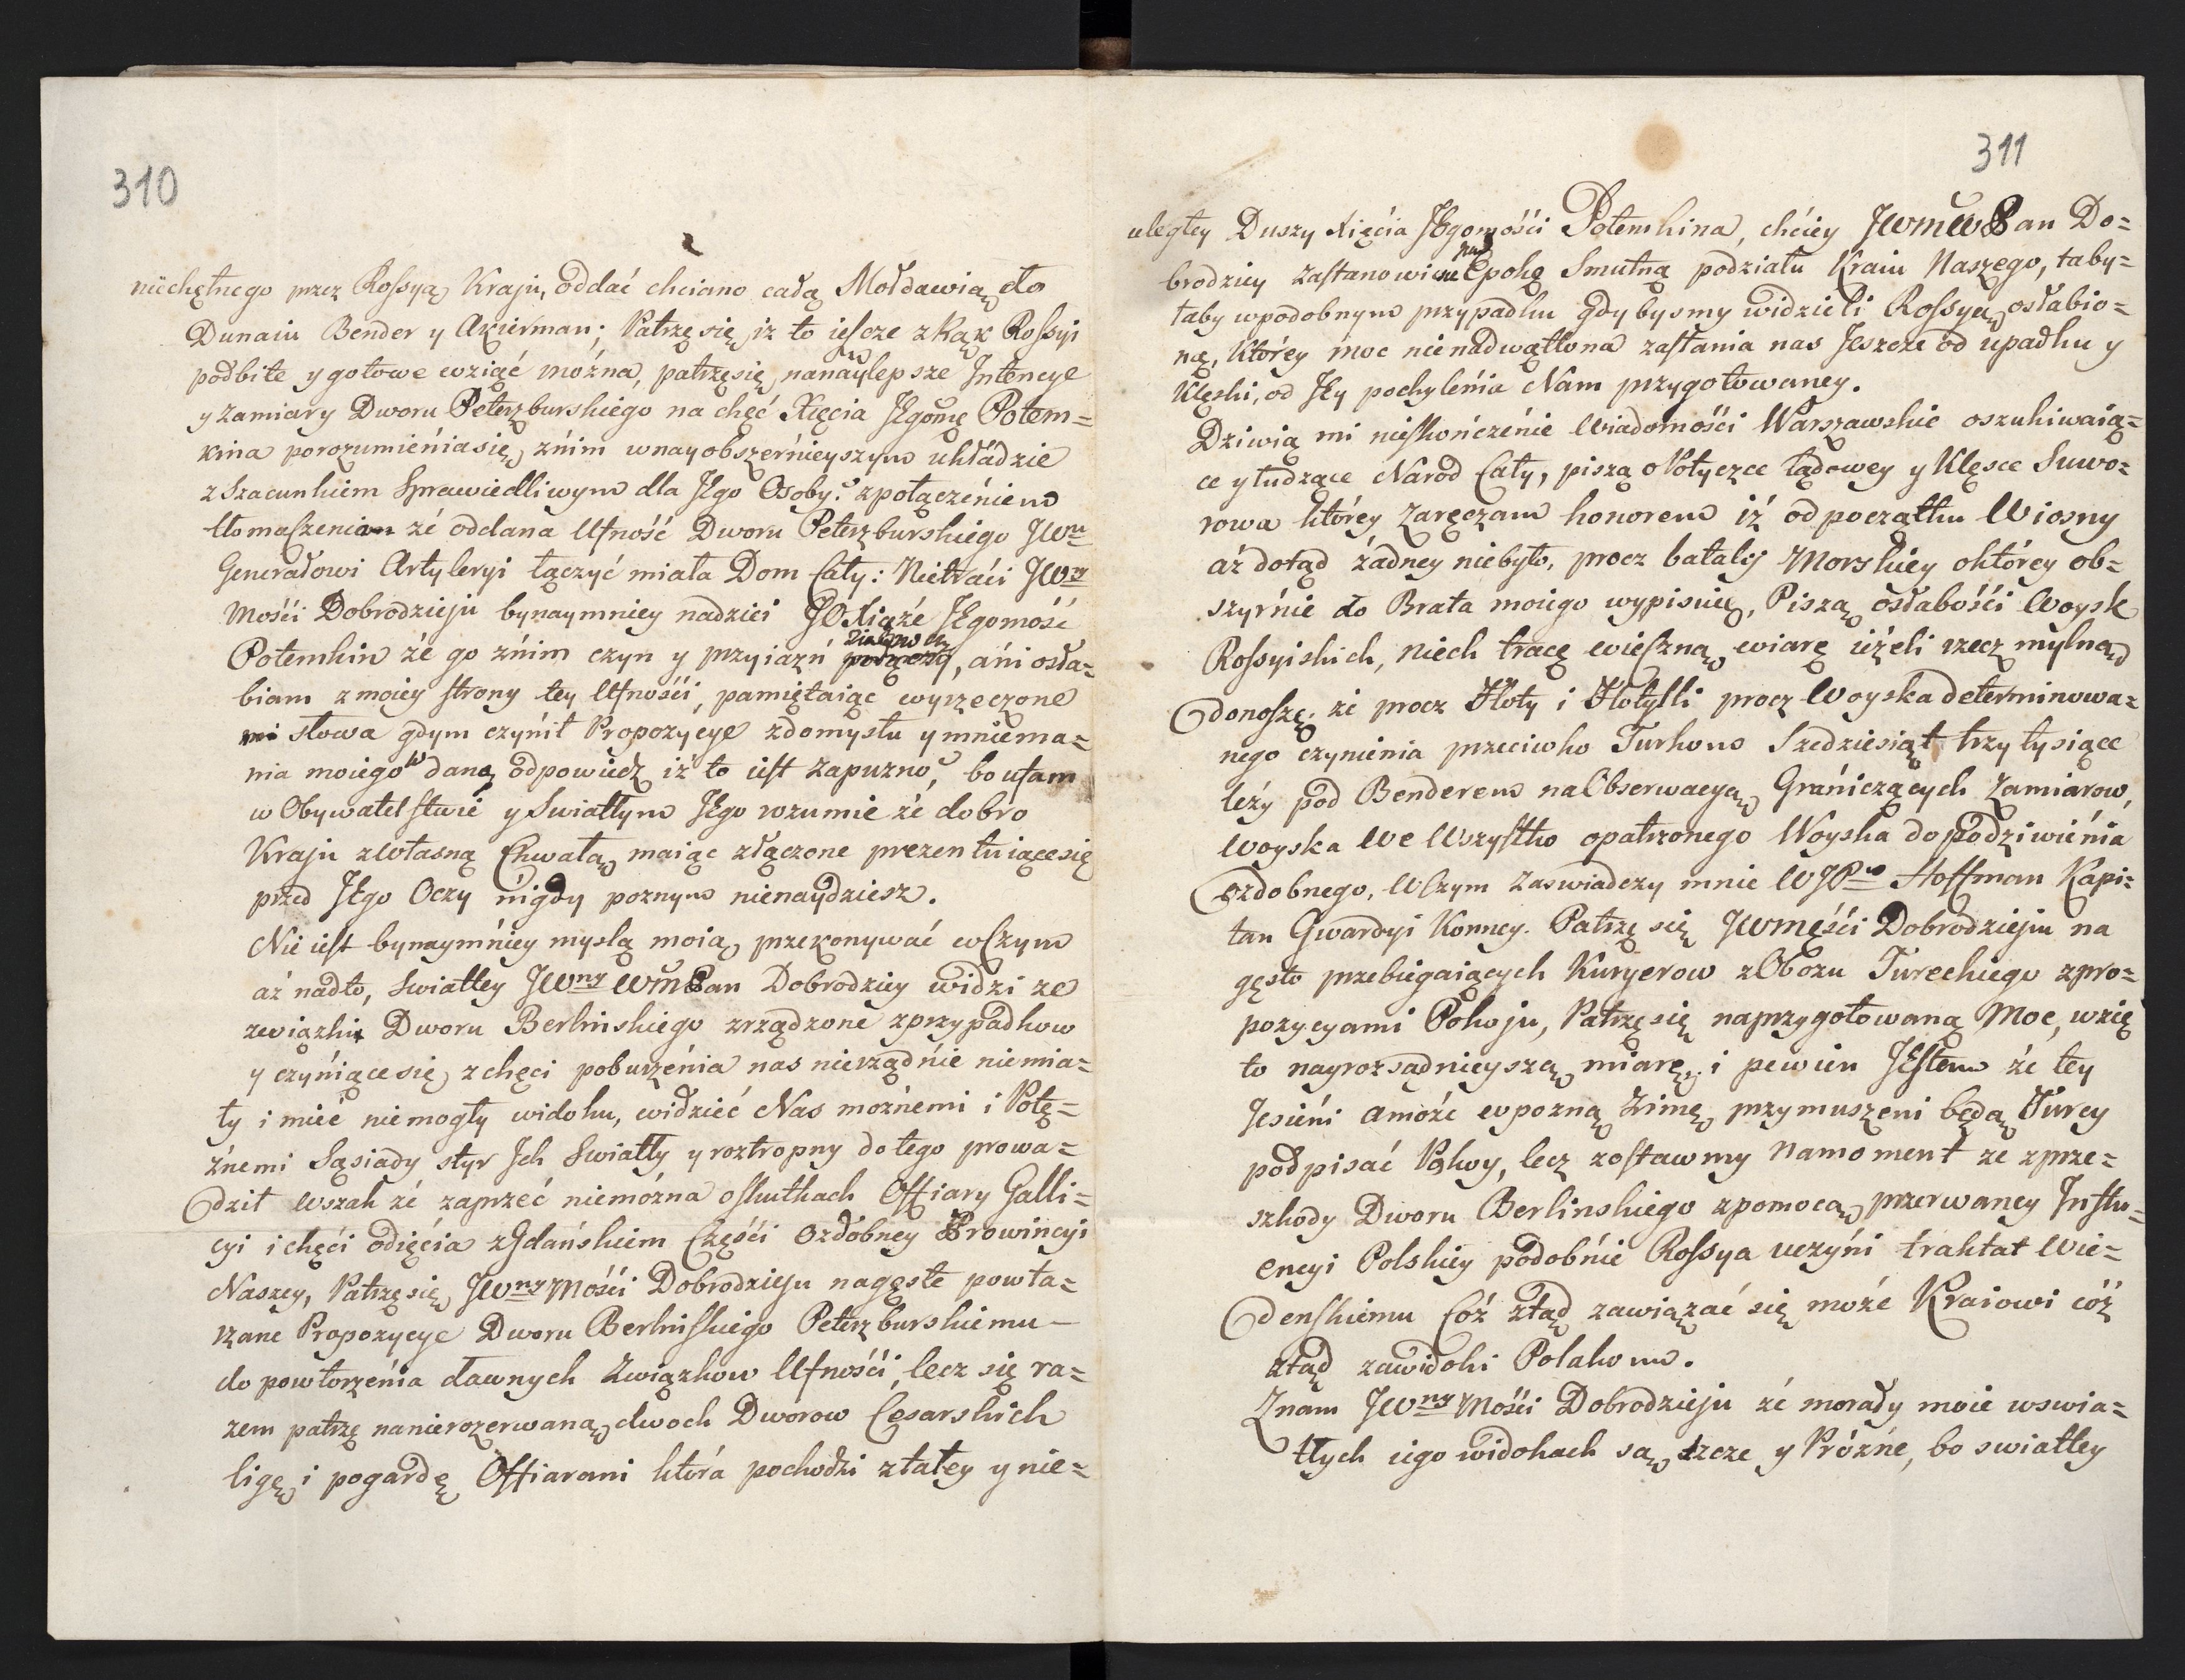 310
niechętnego przez Rossyą Kraju, oddać chciano całą Mołdawią do
Dunaiu Bender y Akierman; Patrzę się iz to iescze z Rąk Rossyi
podbite y gotowe wziąć możná, patrzę się na naylepsze Intencye
y zamiary Dworu Peterzburskiego na chęć Xięcia JEgomę Potem=
kina porozumienia się znim w nayobszernieyszym układzie
z Szacunkiem Sprawiedliwym dla JEgo Osoby: z połączeniem
tłomaszenia że oddana Ufność Dworu Peterzburskiego JWu
Generałowi Artyleryi łączyć miała Dom Cały: Nietraci JWny
Mości Dobrodzieju bynaymniey nadziei JO Xiąże JEgomość
Potemkin że go znim czyn y przyiazń, ani osła=
biam z moiey strony tey Ufności, pamiętaiąc wyrzeczone
mi słowa gdym czynił Propozycye z domysłu y mniema=
nia moiego w daną odpowiedz iż to iest zapuzno, bo ufam
w Obywatelstwie y Swiatłym JEgo rozumie że dobro
Kraju z własną Chwałą maiąc złączone prezentuiące się
przed JEgo Oczy nigdy poznym nienaydziesz.
Nie iest bynaymniey myslą moią przekonywać w Czym
aż nadto, Swiatły JWny WMPan Dobrodziey widzi ze
zwiąźki Dworu Berlinskiego zrządzone z przypadkow
y czyniące się z chęci poburzenia nas nierządnie niemia=
ły i mieć niemogły widoku, widzieć Nas możnemi i Potę=
żnemi Sąsiady styr Ich Swiatły y roztropny do tego prowa=
dzit wszak że zaprzeć niemożna o skutkach Offiary Galli=
cyi i chęci odięcia z Gdańskiem Części ozdobney Prowincyi
Naszey, Patrzę się JWny Mości Dobrodzieju na gęste powta=
rzane Propozycye Dworu Berlinskiego Peterzburskiemu—
do powtorzenia dawnych Związkow Ufności, lecz się ra=
zem patrzę na nierozerwaną dwoch Dworow Cesarskich
ligę i pogardę Offiarami która pochodzi z tałey y nie=
311
uległey Duszy Xięcia JEgomości Potemkina, chciey JWmWPan Do=
brodziey zastanowic nad Epokę Smutną podziału Kraiu Naszego, taby=
łaby w podobnym przypadku gdybysmy widzieli Rossyą osłabio=
ną, Ktorey moc nienadwątlona zasłania nas Jeszcze od upadku y
Klęski, od Jey pochylenia Nam przygotowaney.
Dziwią mi nieskończenie Wiadomości Warszawskie oszukiwaią=
ce y łudzące Narod Cały, piszą o Potyczce lądowey y Klęsce Suwo=
rowa ktorey zaręczam honorem iż od początku Wiosny
aż dotąd żadney niebyło, procz batalij Morskiey o ktorey ob=
szyrnie do Brata moiego wypisuię, Piszą o słabości Woysk
Rossyiskich, niech tracą wieszną wiarę ieżeli rzecz mylną
donoszę, że procz Floty i Flotylli procz Woyska determinowa=
nego czynienia przeciwko Turkom Szedziesiąt trzy tysiące
leży pod Benderem na Obserwacyą Graniczących zamiarow,
Woyska We Wszystko opatrzonego Woyska do podziwienia
ozdobnego, W Czym zaswiadczy mnie WJPn Hoffman Kapi=
tan Gwardyi Konney. Patrzę się JWmęści Dobrodzieju na
gęsto przebiegaiących Kuryerow z Obozu Tureckiego z pro=
pozycyami Pokoju, Patrzę się na przygotowaną Moc, wzię
to nayrozsądnieyszą miarę, i pewien Jestem że tey
Jesieni a może w pozną Zimę przymuszeni będą Turcy
podpisać Pokoy, lecz zostawmy na moment ze z prze=
szkody Dworu Berlinskiego z pomocą przerwaney Influ=
encyi Polskiey podobnie Rossya uczyni traktat Wie=
denskiemu Cóż ztąd zawiązać się może Kraiowi cóż
ztąd za widoki Polakom.
Znam JWny Mości Dobrodzieju że morały moie w swia=
tłych iego widokach są tszcze y Próżne, bo swiatłey